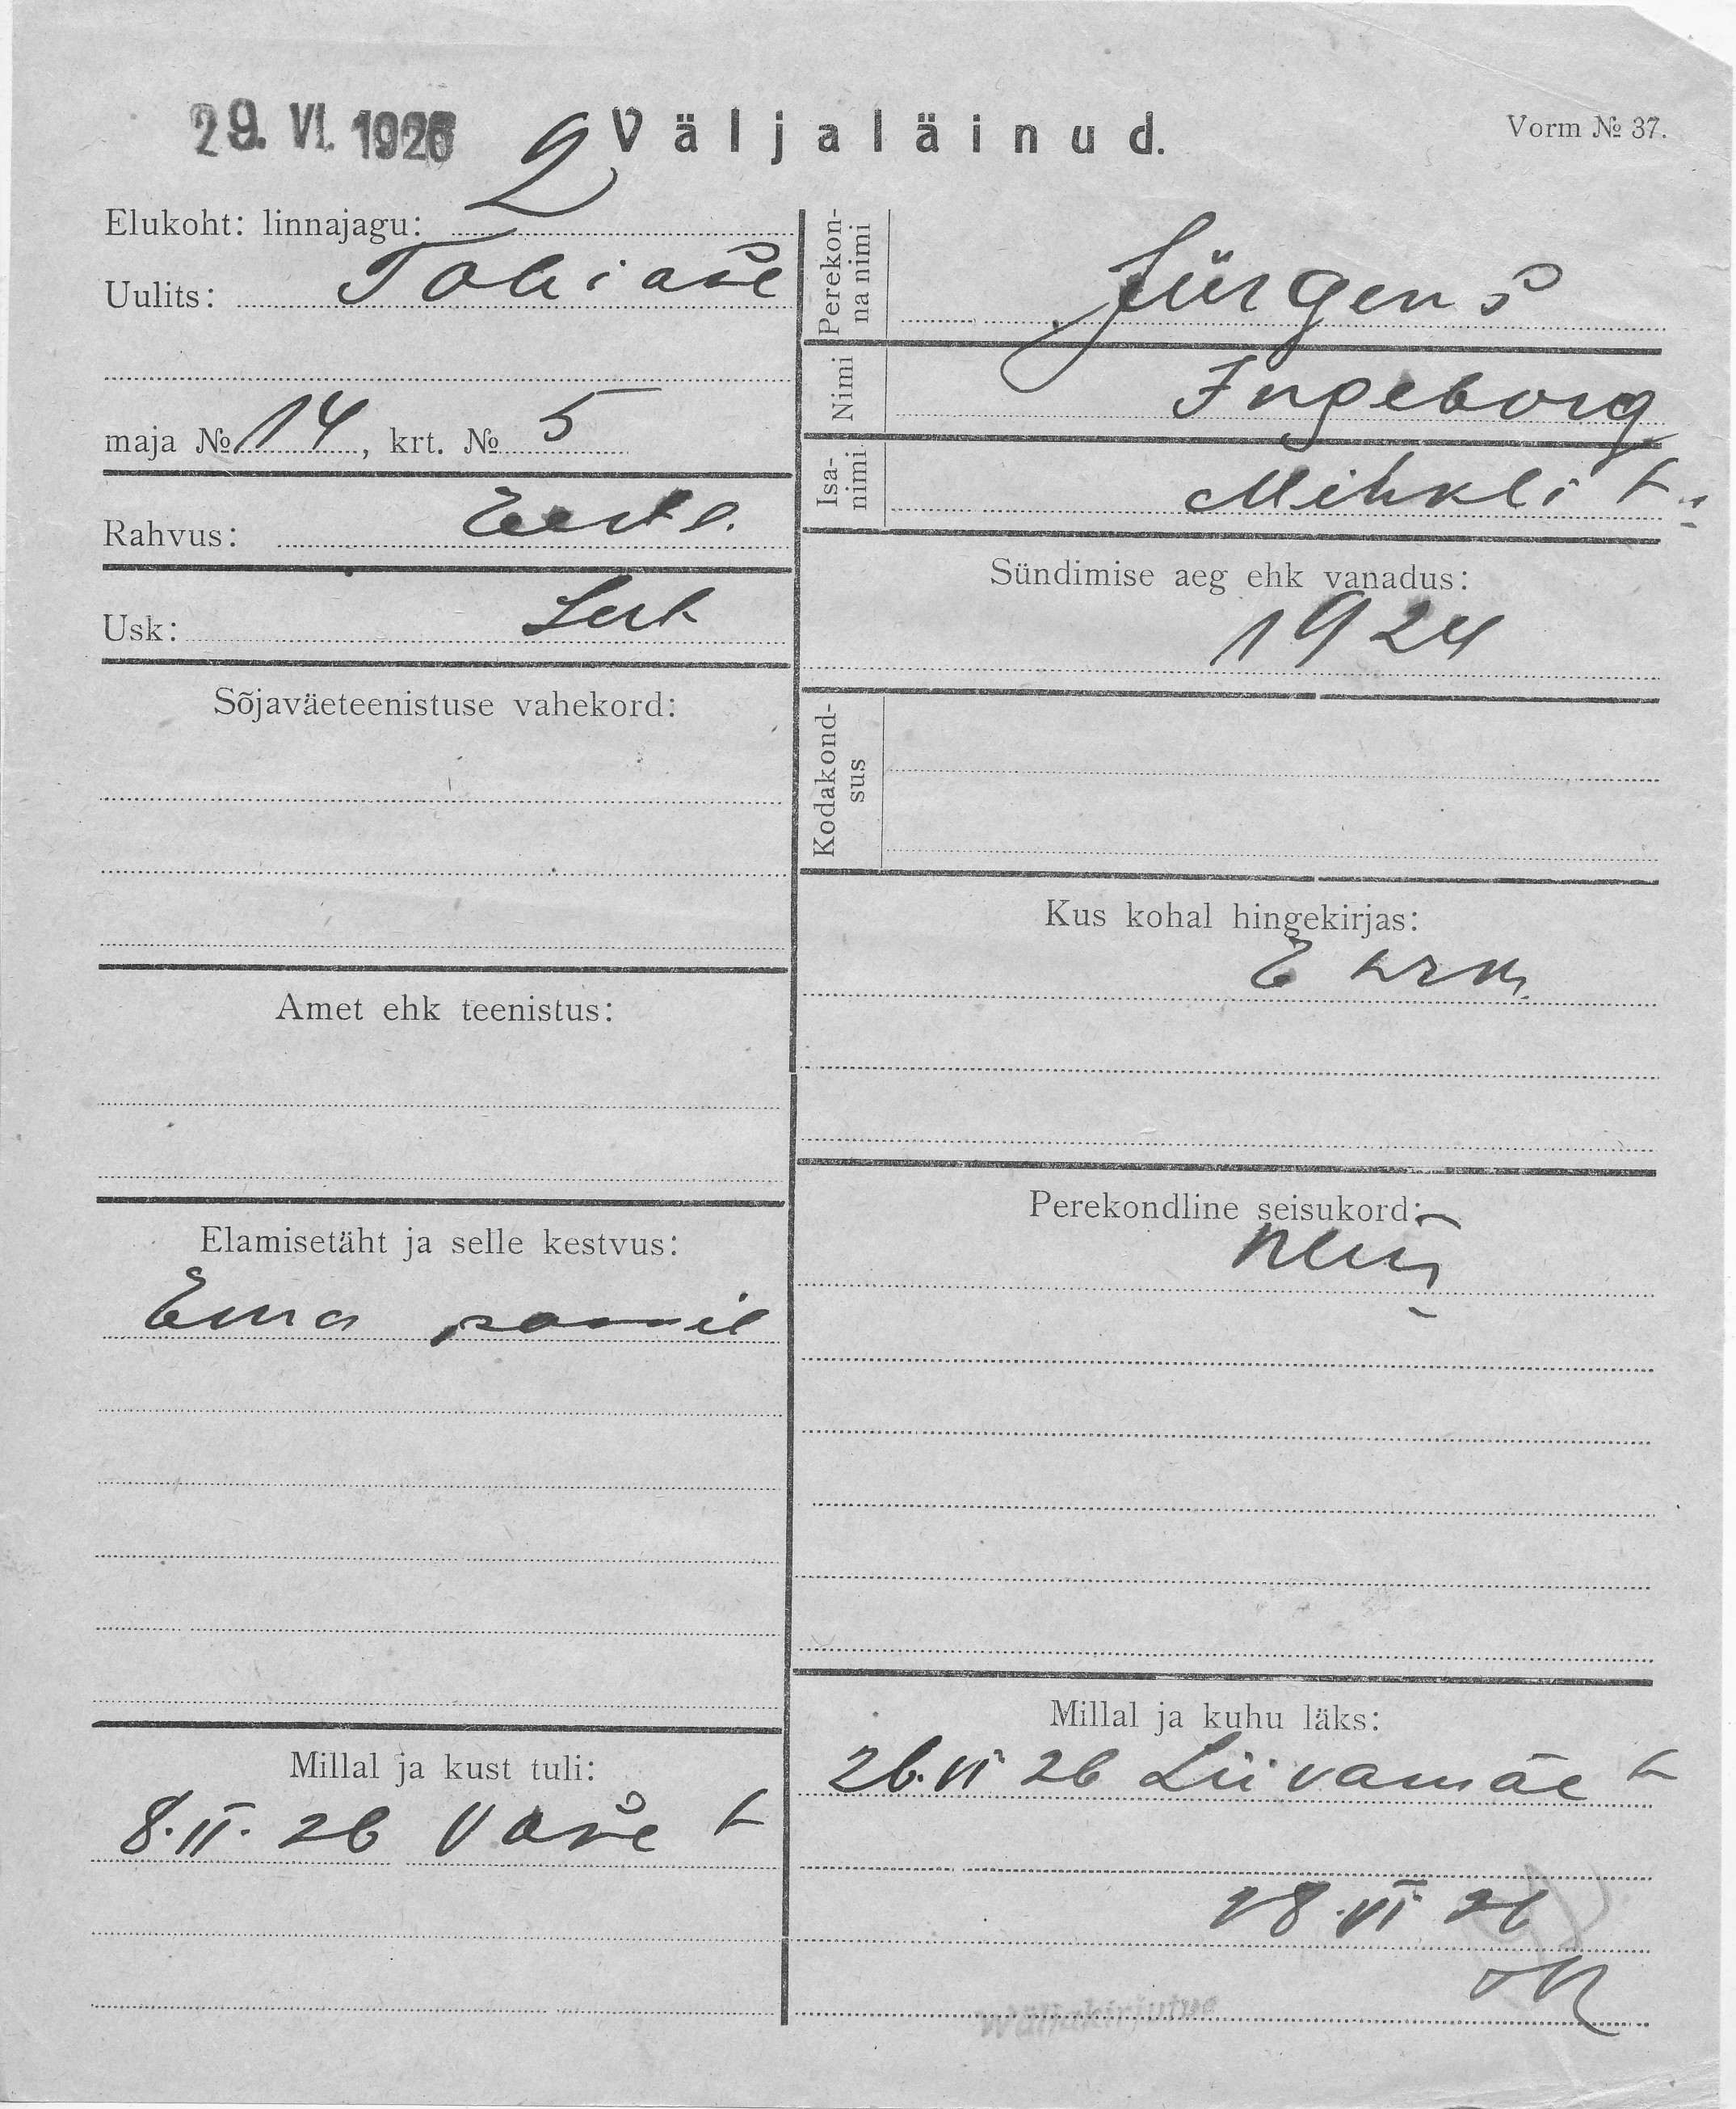 29. VI. 1926
Väljaläinud.
Vorm № 37.
Elukoht: linnajagu: 2
Uulits: Tobiase
maja № 14, krt. № 5
Rahvus: Eestl.
Usk: Lut
Sõjaväeteenistuse vahekord:
Amet ehk teenistus:
Elamisetäht ja selle kestvus:
Ema passil
Millal ja kust tuli:
8.II. 26 Vase t
Perekon-
na nimi
Jürgens
Nimi
Ingeborg
Isa-
nimi
Mihkli t.
Sündimise aeg ehk vanadus:
1924
Kodakond-
sus
Kus kohal hingekirjas:
Perekondline seisukord:
Millal ja kuhu läks:
26.VI 26 Liivamäe t
28.VI 26